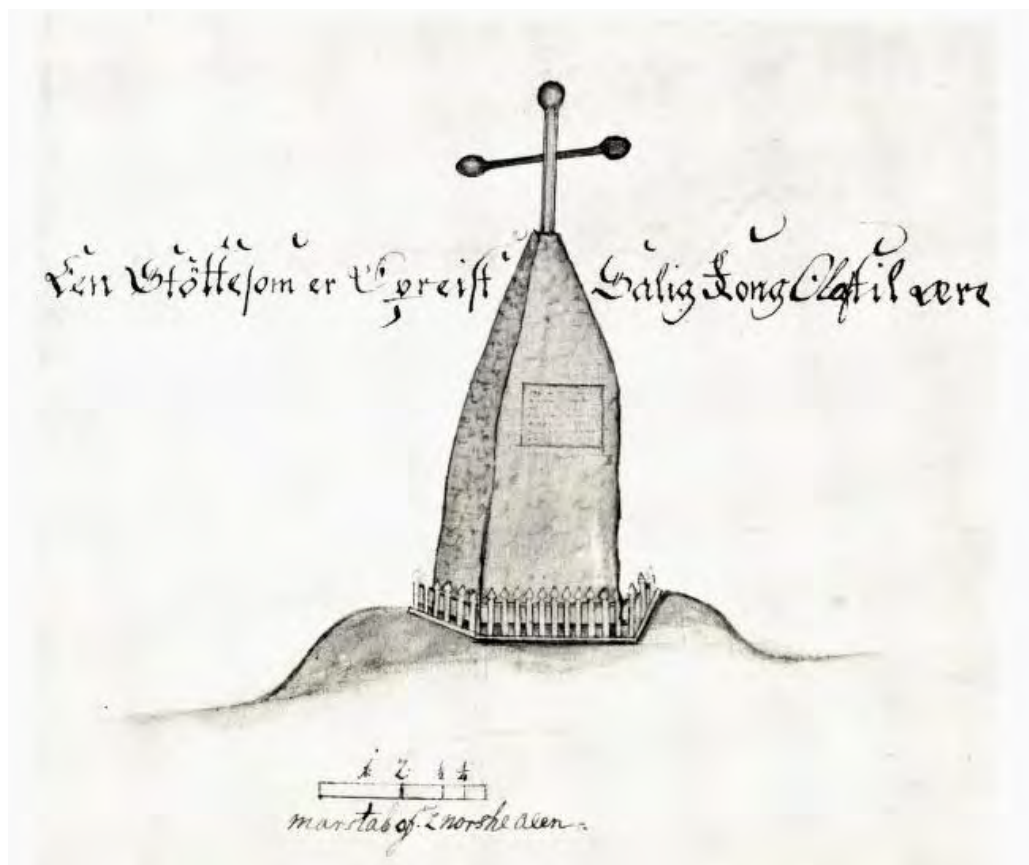 En Stötte som er Opreist Salig Kong Olaf til ære
1 2
marstab af 2 norske alen